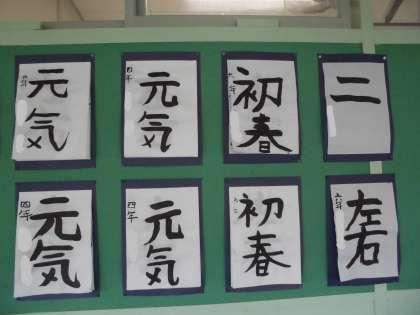 二
初春
元気
四年
元気
元気
左右
六年
初春
元気
四年
元気
四年